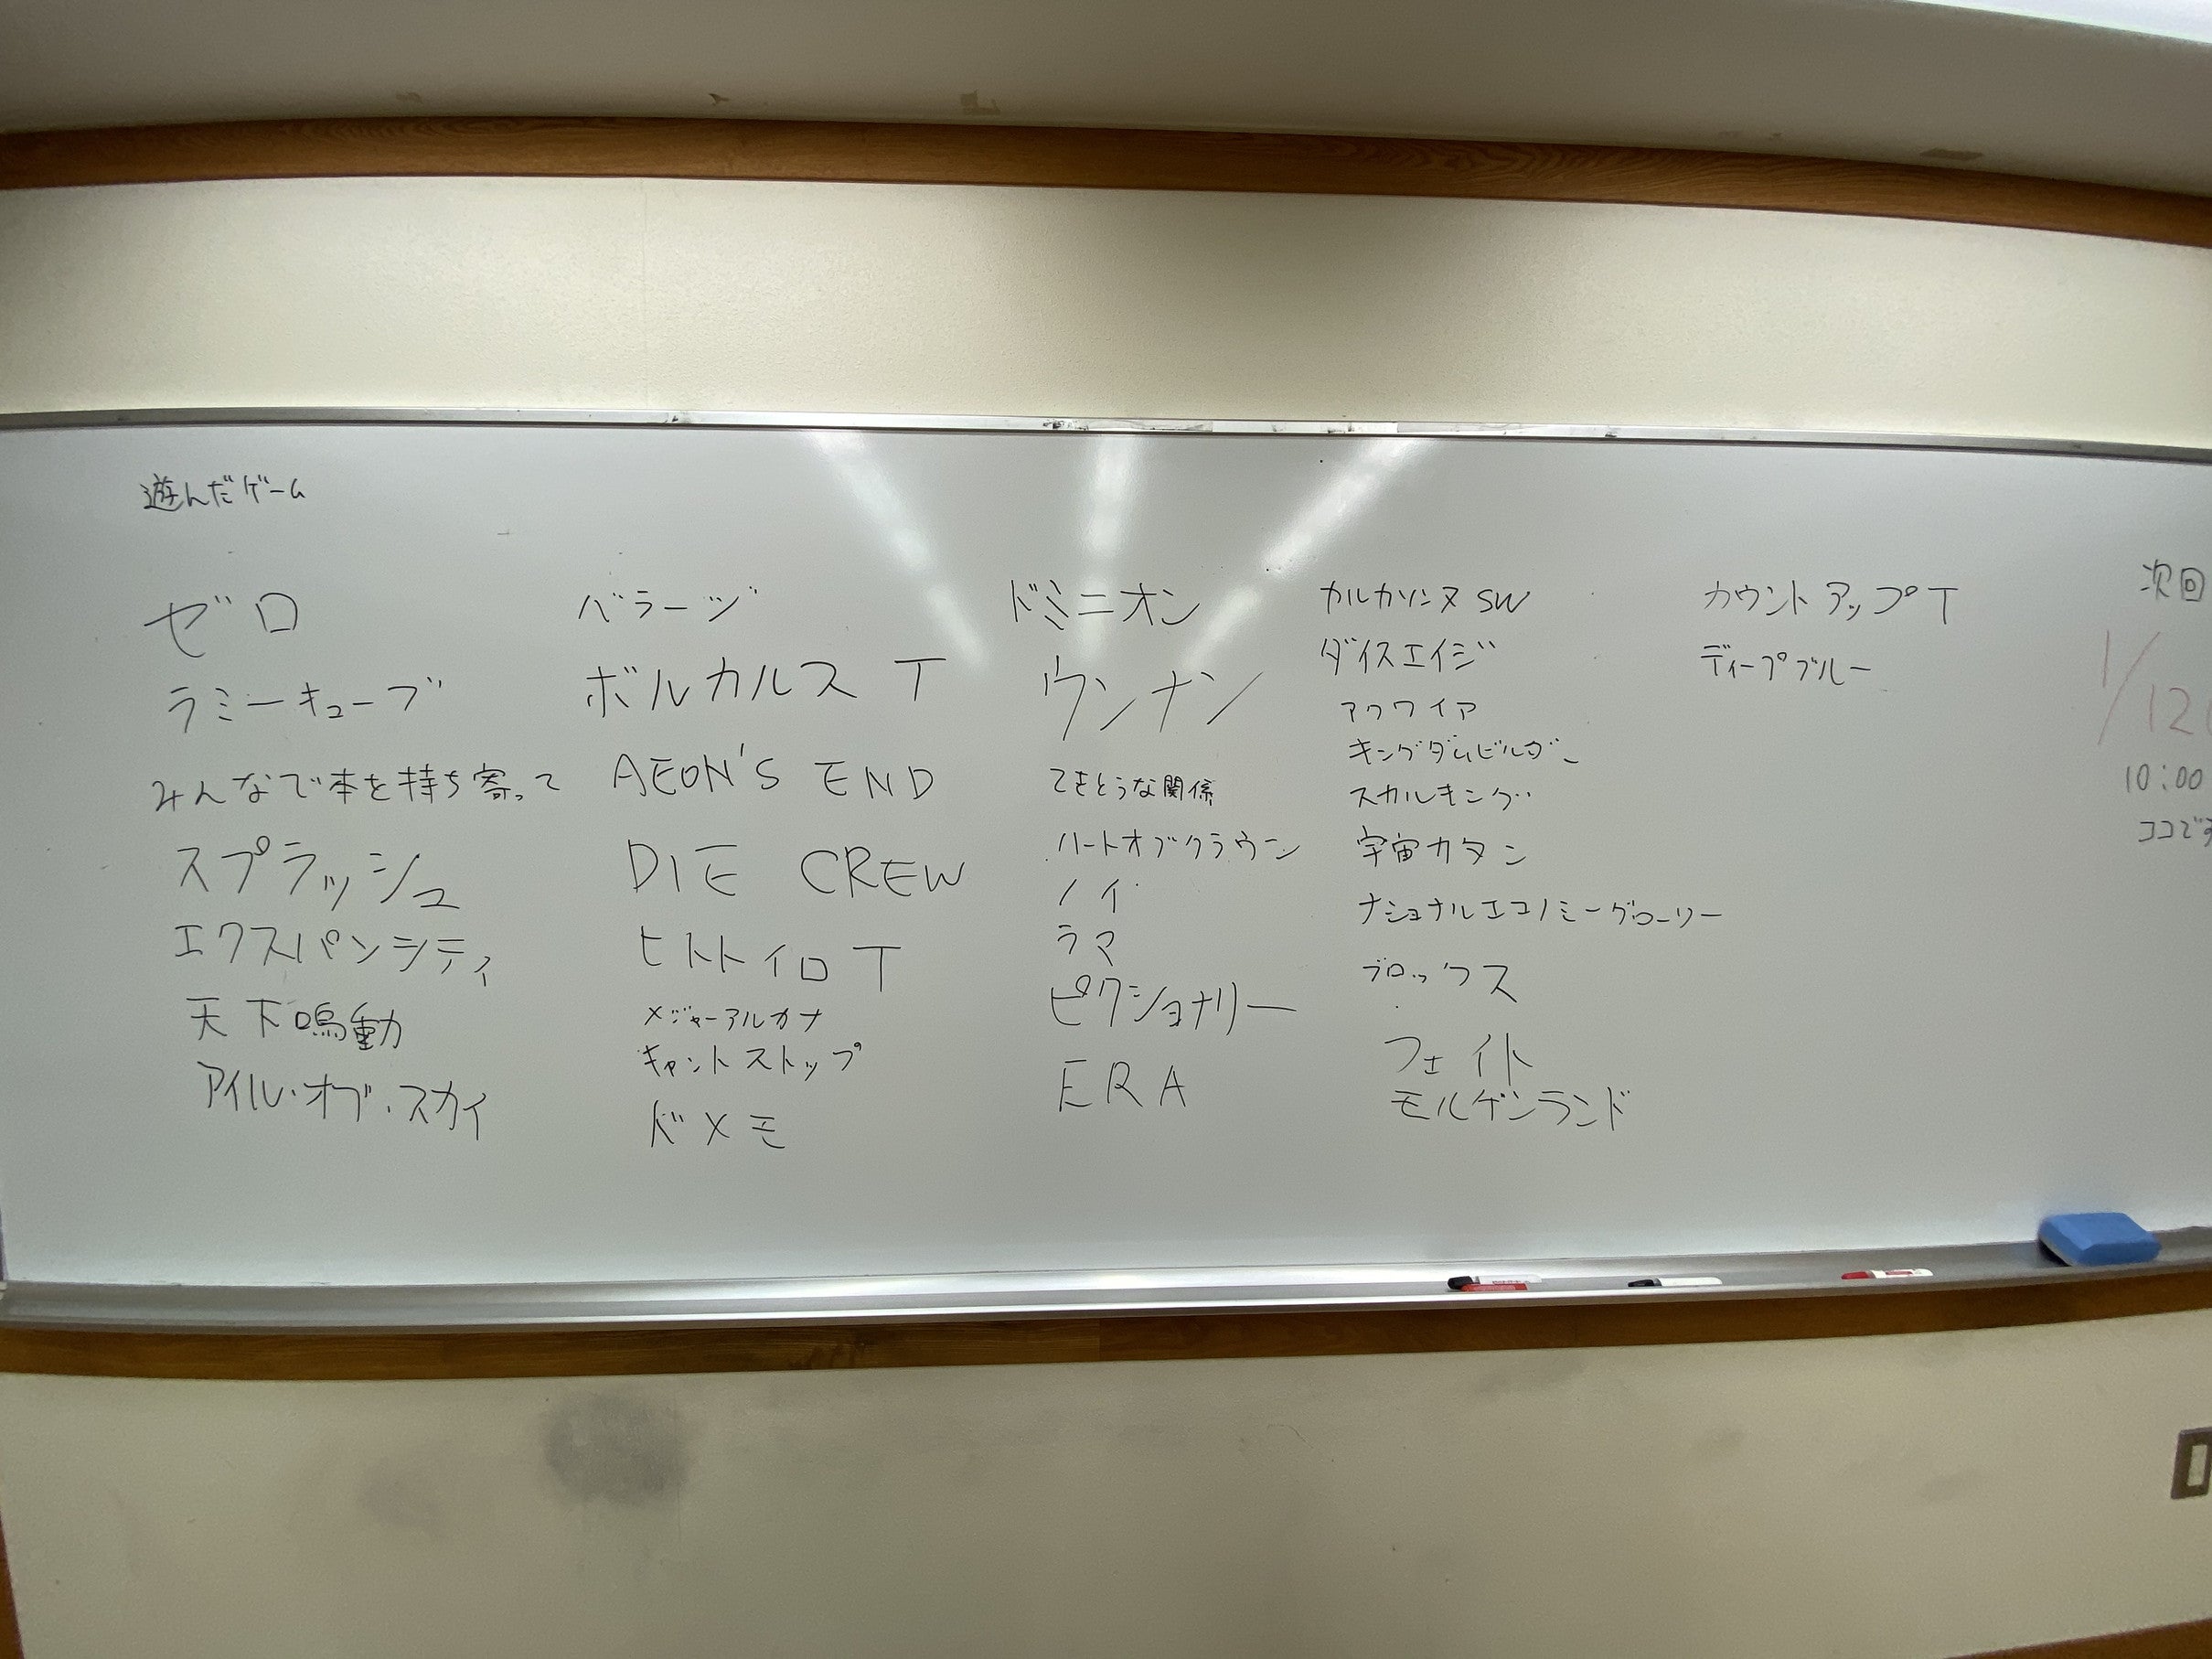 遊んだゲーム
ゼロ
ラミーキューブ
みんなで本を持ち寄って
スプラッシュ
エクスパンシティ
天下鳴動
アイル・オブ・スカイ
バラージ
ボルカルス T
AEON'S END
DIE CREW
ヒトトイロ T
メジャーアルカナ
キャントストップ
ドメモ
ドミニオン
ウンナン
てきとうな関係
ハートオブクラウン
ノイ
ラマ
ピクショナリー
ERA
カルカソンヌ SW
ダイスエイジ
アクワイア
キングダムビルダー
スカルキング
宇宙カタン
ナショナルエコノミーグローリー
ブロックス
フェイト
モルゲンランド
カウントアップ T
ディープブルー
次回
1/12(
10:00
ココです